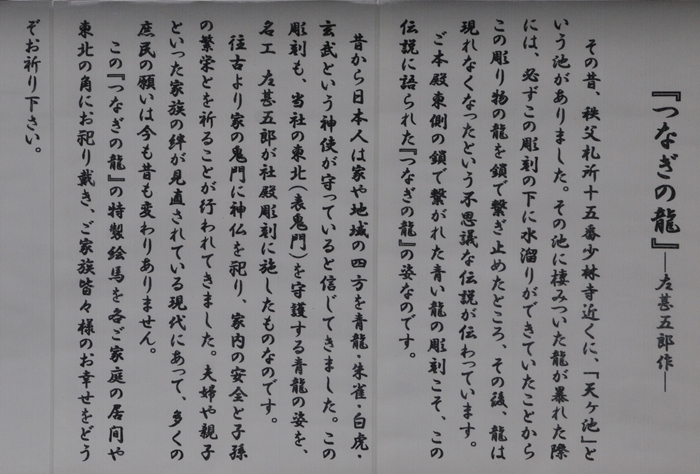 『つなぎの龍』―左甚五郎作―
その昔、秩父札所十五番少林寺近くに、「天ヶ池」と
いう池がありました。その池に棲みついた龍が暴れた際
には、必ずこの彫刻の下に水溜りができていたことから
この彫り物の龍を鎖で繋ぎ止めたところ、その後、龍は
現れなくなったという不思議な伝説が伝わっています。
ご本殿東側の鎖で繋がれた青い龍の彫刻こそ、この
伝説に語られた『つなぎの龍』の姿なのです。
昔から日本人は家や地域の四方を青龍・朱雀・白虎・
玄武という神使が守っていると信じてきました。この
彫刻も、当社の東北(表鬼門)を守護する青龍の姿を、
名工 左甚五郎が社殿彫刻に施したものなのです。
往古より家の鬼門に神仏を祀り、家内の安全と子孫
の繁栄とを祈ることが行われてきました。夫婦や親子
といった家族の絆が見直されている現代にあって、多くの
庶民の願いは今も昔も変わりありません。
この『つなぎの龍』の特製絵馬を各ご家庭の居間や
東北の角にお祀り戴き、ご家族皆々様のお幸せをどう
ぞお祈り下さい。